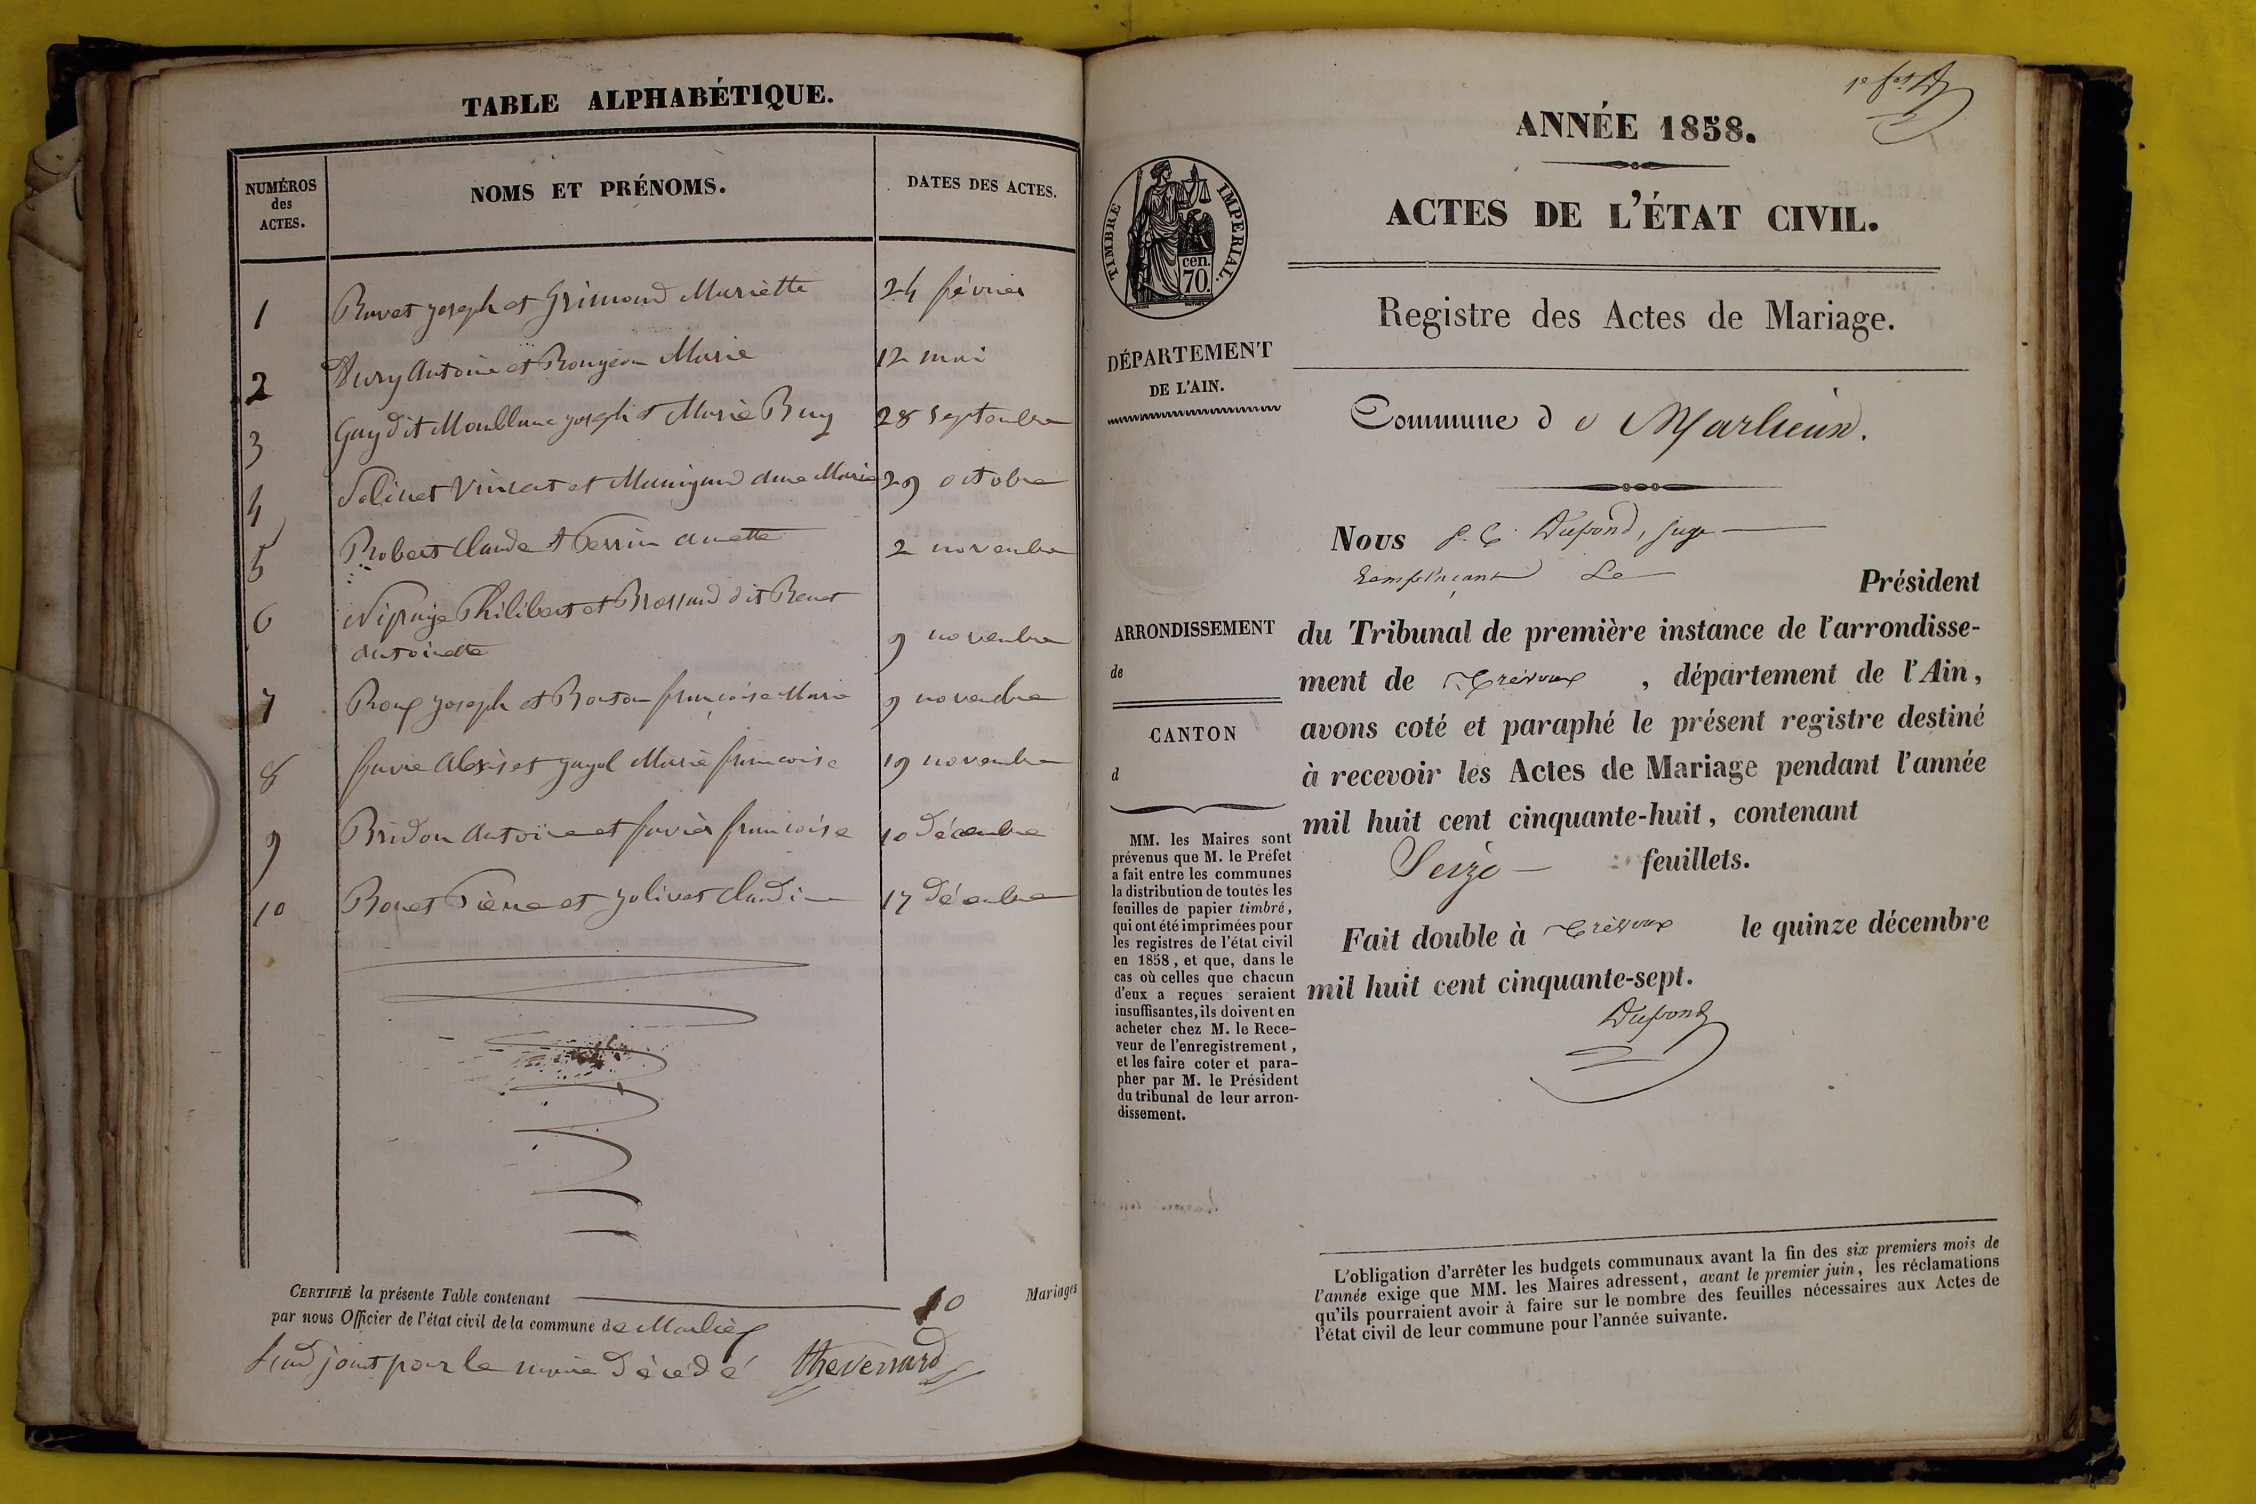 TABLE ALPHABÉTIQUE.
NUMÉROS
des
ACTES.
NOMS ET PRÉNOMS.
DATES DES ACTES.
1 Buvet joseph et Grimond Mariette 24 février
2 Dury Antoine et Rongeon Marie 12 mai
3 Gay dit joseph et Marie Buy 28 septembre
4 Solinet Vincent et Marie 29 octobre
5 Robert Claude et Perrin anette 2 novembre
6 Philibert et Brossard dit Benet
antoinette 9 novembre
7 Roux joseph et Bouton françoise Marie 9 novembre
8 favre Alexis et gayol Marie françoise 19 novembre
9 Bridon Antoine et favier françoise 10 décembre
10 Bonet Pierre et jolivet Claudine 17 décembre
CERTIFIÉ la présente Table contenant 10 Mariages
par nous Officier de l'état civil de la commune de Marlieux
joint pour le maire décédé thevenard
1e ft D
ANNÉE 1858.
ACTES DE L'ÉTAT CIVIL.
Registre des Actes de Mariage.
TIMBRE IMPERIAL.
cen.
70.
DÉPARTEMENT
DE L'AIN.
Commune de Marlieux.
Nous Dupond, juge
remplaçant Le Président
du Tribunal de première instance de l'arrondisse-
ment de Trévoux, département de l'Ain,
avons coté et paraphé le présent registre destiné
à recevoir les Actes de Mariage pendant l'année
mil huit cent cinquante-huit, contenant
Seize feuillets.
Fait double à Trévoux le quinze décembre
mil huit cent cinquante-sept.
Dupond
ARRONDISSEMENT
de
CANTON
d
MM. les Maires sont
prévenus que M. le Préfet
a fait entre les communes
la distribution de toutes les
feuilles de papier timbré,
qui ont été imprimées pour
les registres de l'état civil
en 1858, et que, dans le
cas où celles que chacun
d'eux a reçues seraient
insuffisantes, ils doivent en
acheter chez M. le Rece-
veur de l'enregistrement,
et les faire coter et para-
pher par M. le Président
du tribunal de leur arron-
dissement.
L'obligation d'arrêter les budgets communaux avant la fin des six premiers mois de
l'année exige que MM. les Maires adressent, avant le premier juin, les réclamations
qu'ils pourraient avoir à faire sur le nombre des feuilles nécessaires aux Actes de
l'état civil de leur commune pour l'année suivante.